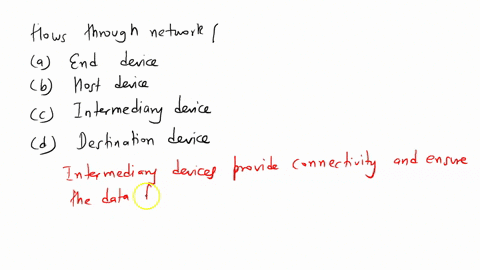 flows through network?
(a) End device
(b) Host device
(c) Intermediary device
(d) Destination device
Intermediary devices provide connectivity and ensure
the data f